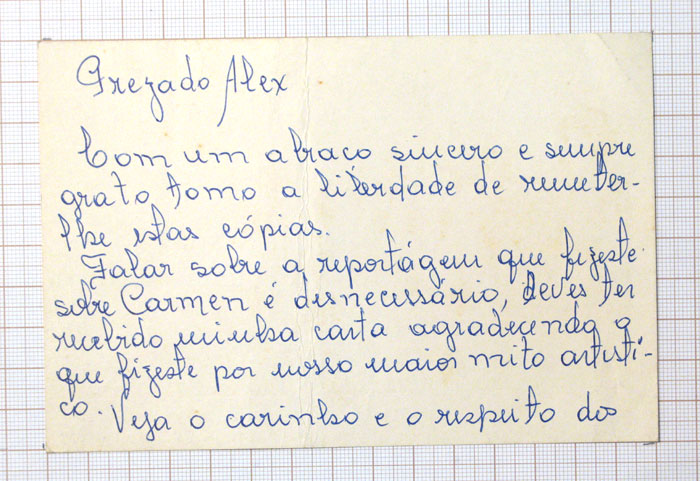 Prezado Alex
Com um abraço sincero e sempre
grato, tomo a liberdade de remeter-
lhe estas cópias.
Falar sobre a reportágem que fizeste
sobre Carmen é desnecessário, deves ter
recebido minha carta agradecendo o
que fizeste por nosso maior mito artísti-
co. Veja o carinho e o respeito dos